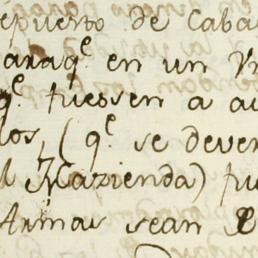 repuesto de Caba
para q.^e en un
q.^e fuessen a au
los, (q.^e se dever
l Hazienda) fu
Armas sean